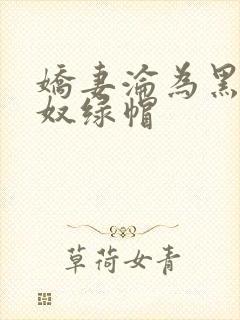 嬌妻淪為黑
奴绿帽
草荷女青